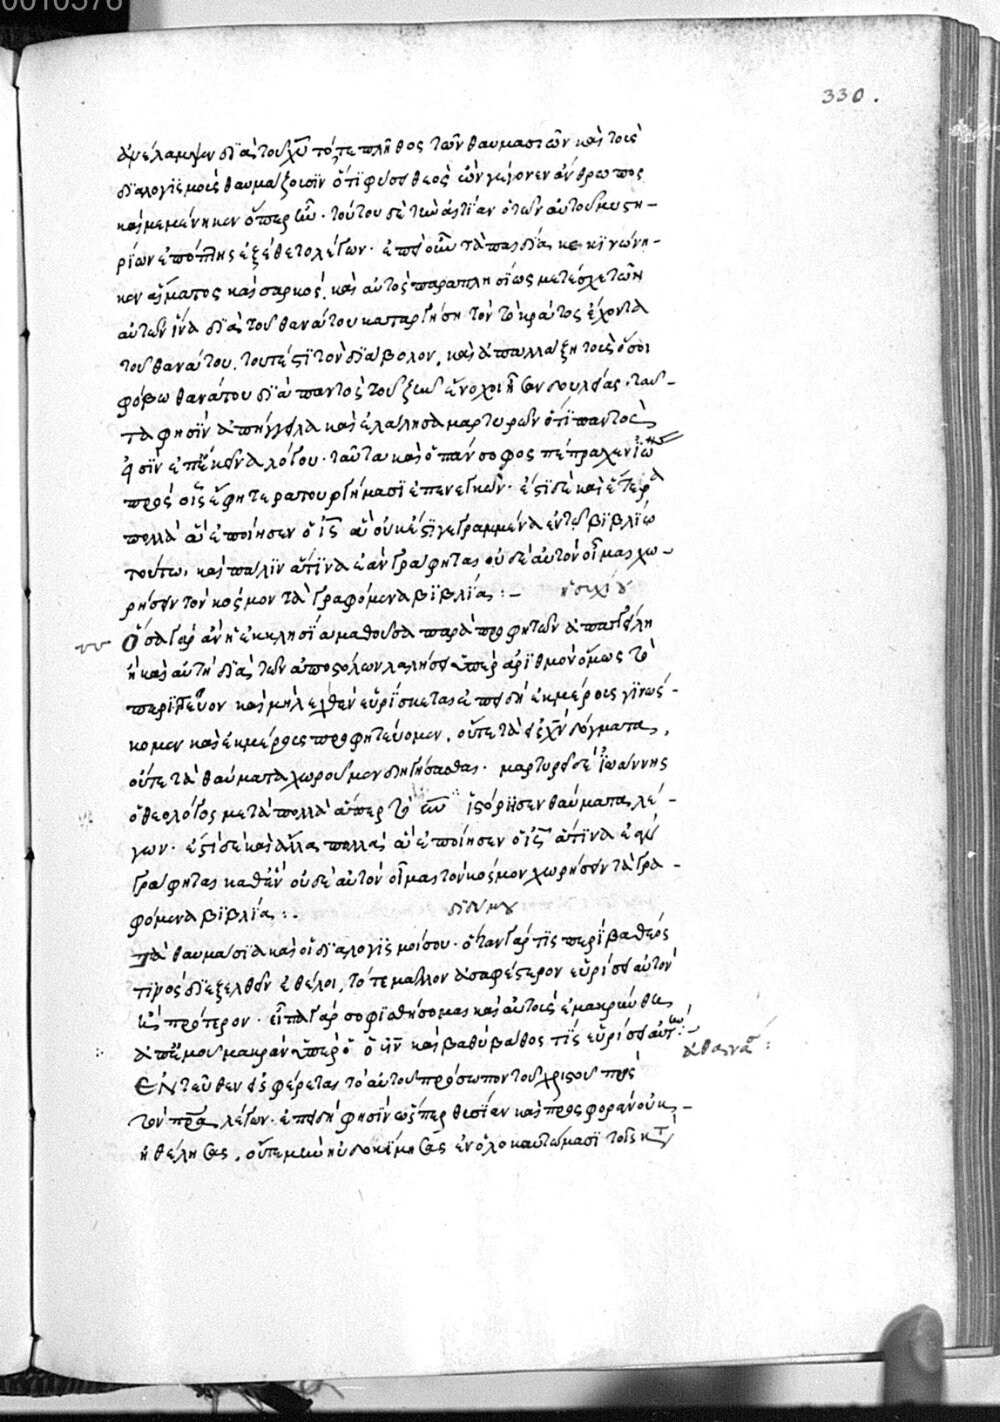 0010576
330.
ἀνέλαμψεν διὰ τοῦ χυ τότε πλῆθος τῶν θαυμαστῶν καὶ τοῖς
διαλογισμοῖς θαυμάζουσιν ὅτι φύσει θεὸς ὢν γέγονεν ἄνθρωπος
καὶ μεμένηκεν ὅπερ ἦν. τούτου δὲ τὴν αἰτίαν ὁ τῶν αὐτοῦ μυστη-
ρίων ἐπόπτης ἐξέθετο λέγων. ἐπεὶ οὖν τὰ παιδία κεκοινώνη-
κεν αἵματος καὶ σαρκός, καὶ αὐτὸς παραπλησίως μετέσχε τῶν
αὐτῶν ἵνα διὰ τοῦ θανάτου καταργήσῃ τὸν τὸ κράτος ἔχοντα
τοῦ θανάτου, τουτέστι τὸν διάβολον, καὶ ἀπαλλάξῃ τούς ὅσοι
φόβω θανάτου διὰ παντὸς τοῦ ζῆν ἔνοχοι ἦσαν δουλείας. ταῦ-
τα φησὶν ἀπήγγειλα καὶ ἐλάλησα μαρτυρῶν ὅτι παντὸς
εἰσὶν ἐπέκεινα λόγου. ταῦτα καὶ ὁ πάνσοφος πέπραχεν ἰωης
πρὸς οἷς ἔφη τερατουργήμασι ἐπενεγκών. ἔστι δὲ καὶ ἕτερα
πολλὰ ἃ ἐποίησεν ὁ ις ἃ οὐκ ἔστι γεγραμμένα ἐν τῷ βιβλίω
τούτω, καὶ πάλιν ἅτινα ἐὰν γράφηται οὐδὲ αὐτὸν οἶμαι χω-
ρήσειν τὸν κόσμον τὰ γραφόμενα βιβλία:- ἡσιχίου
Ὅσα γὰρ ἂν ἡ ἐκκλησία μαθοῦσα παρὰ προφητῶν ἀπαγγείλη
ἢ καὶ αὐτὴ διὰ τῶν ἀποστόλων λαλήσει ὑπὲρ ἀριθμὸν ὅμως τὸ
περιττεῦον καὶ μὴ λεχθὲν εὑρίσκεται ἐπειδὴ ἐκ μέρους γινώσ-
κομεν καὶ ἐκ μέρους προφητεύομεν, οὔτε τὰ δόγματα,
οὔτε τὰ θαύματα χωροῦμεν διηγήσασθαι. μαρτυρεῖ δὲ ἰωάννης
ὁ θεολόγος μετὰ πολλὰ ἅπερ ἱστόρησεν θαύματα, λέ-
γων. ἔστι δὲ καὶ ἄλλα πολλὰ ἃ ἐποίησεν ὁ ις ἅτινα ἐὰν
γράφηται καθ' ἓν οὐδὲ αὐτὸν οἶμαι τὸν κόσμον χωρήσειν τὰ γρα-
φόμενα βιβλία:. διδύμου
Τὰ θαυμάσια καὶ οἱ διαλογισμοί σου. ὅταν γάρ τις περὶ βαθέος
τινὸς διεξελθεῖν ἐθέλοι, τότε μᾶλλον ἀσαφέστερον εὑρίσει αὐτὸν
ἢ πρότερον. εἶπα γὰρ σοφισθήσομαι καὶ αὐτοὶς ἐμακρύνθη
ἀπ' ἐμοῦ μακρὰν ὑπὲρ ὃ ἦν καὶ βαθὺ βάθος τίς εὑρίσει αὐτω:-
ἀθανασ :
Ἐντεῦθεν εἰσφέρεται τὸ αὐτοῦ πρόσωπον τοῦ χριστοῦ πρὸς
τὸν πρα λέγων. ἐπειδὴ φησὶν ὥσπερ θυσίαν καὶ προσφορὰν οὐκ
ἠθέλησας, οὔτε μὴν ηὐδοκίμησας ἐν ὁλοκαυτώμασι τοῖς κτ